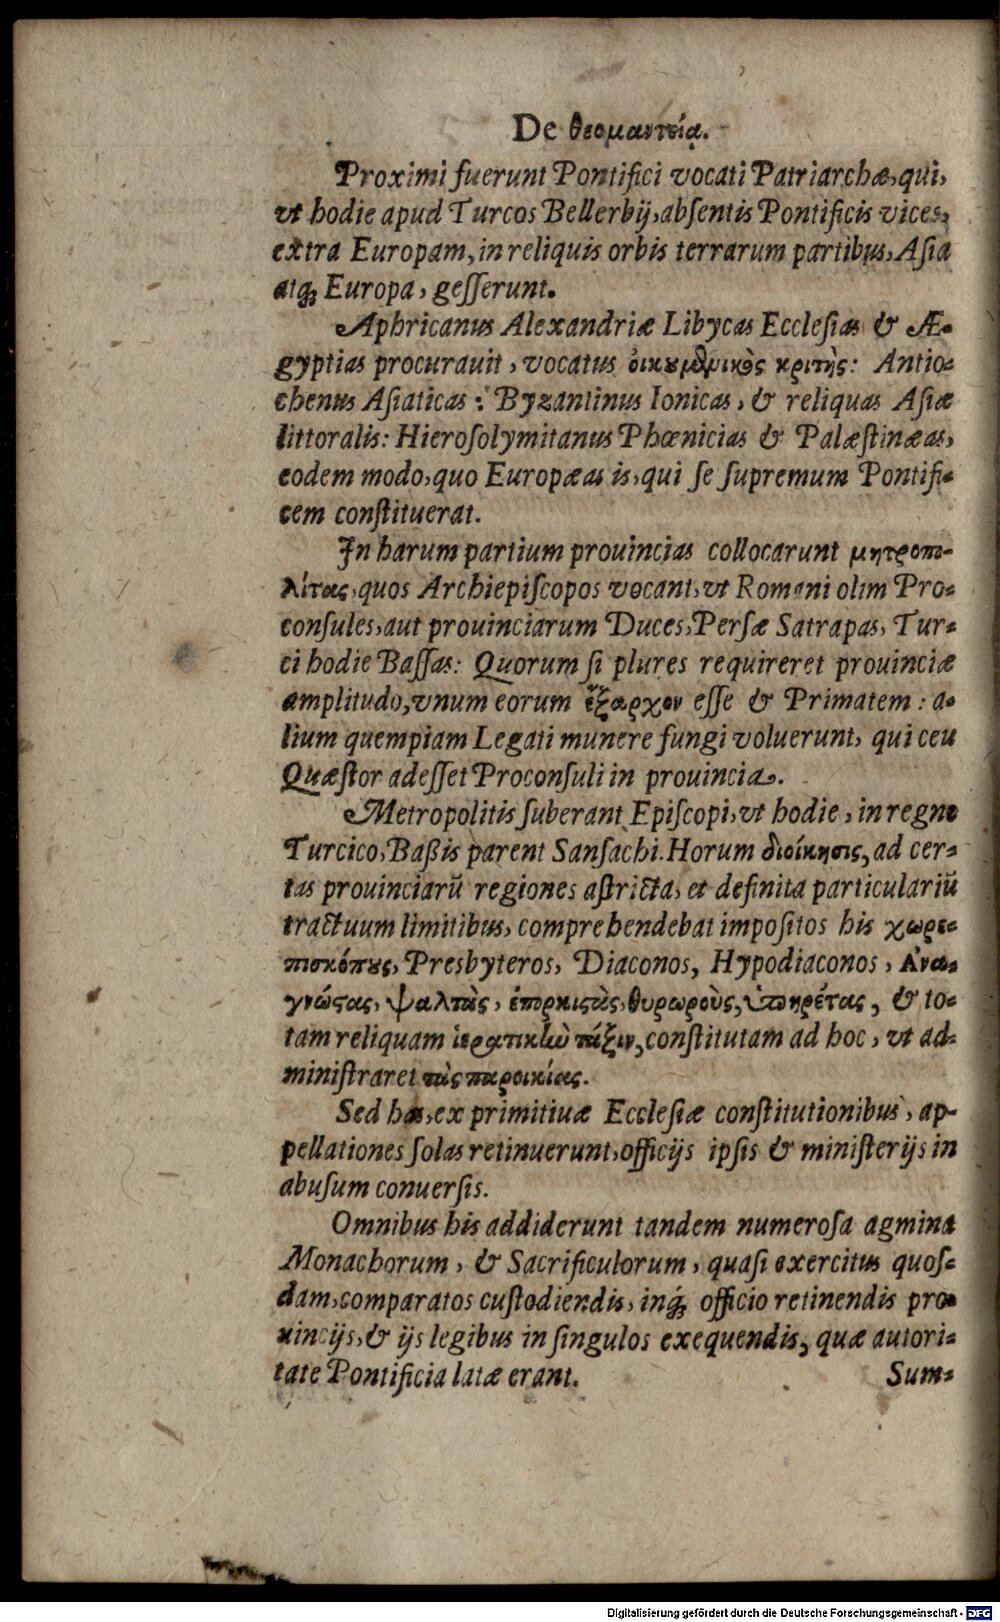 De θεομαντείᾳ.
Proximi fuerunt Pontifici vocati Patriarchæ, qui,
vt hodie apud Turcos Bellerbij, absentis Pontificis vices,
extra Europam, in reliquis orbis terrarum partibus, Asia
atq; Europa, gesserunt.
Aphricanus Alexandriæ Libycas Ecclesias & Æ-
gyptias procurauit, vocatus οἰκουμενικὸς κριτὴς: Antio-
chenus Asiaticas: Byzantinus Ionicas, & reliquas Asiæ
littoralis: Hierosolymitanus Phœnicias & Palæstinæas,
eodem modo, quo Europæas is, qui se supremum Pontifi-
cem constituerat.
In harum partium prouincias collocarunt μητροπο-
λίτας, quos Archiepiscopos vocant, vt Romani olim Pro-
consules, aut prouinciarum Duces, Persæ Satrapas, Tur-
ci hodie Bassas: Quorum si plures requireret prouinciæ
amplitudo, vnum eorum ἔξαρχον esse & Primatem: a-
lium quempiam Legati munere fungi voluerunt, qui ceu
Quæstor adesset Proconsuli in prouincia.
Metropolitis suberant Episcopi, vt hodie, in regno
Turcico, Baßis parent Sansachi. Horum διοίκησις, ad cer-
tas prouinciarū regiones astricta, et definita particulariū
tractuum limitibus, comprehendebat impositos his χωρε-
πισκόπους, Presbyteros, Diaconos, Hypodiaconos, Ἀνα-
γνώστας, ψαλτὰς, ἐπορκιστὰς, θυρωροὺς, ὑπηρέτας, & to-
tam reliquam ἱερατικὴν τάξιν, constitutam ad hoc, vt ad-
ministraret τὰς παροικίας.
Sed has, ex primitiuæ Ecclesiæ constitutionibus, ap-
pellationes solas retinuerunt, officijs ipsis & ministerijs in
abusum conuersis.
Omnibus his addiderunt tandem numerosa agmina
Monachorum, & Sacrificulorum, quasi exercitus quos-
dam, comparatos custodiendis, inq; officio retinendis pro-
uincijs, & ijs legibus in singulos exequendis, quæ autori-
tate Pontificia latæ erant. Sum-
Digitalisierung gefördert durch die Deutsche Forschungsgemeinschaft - DFG